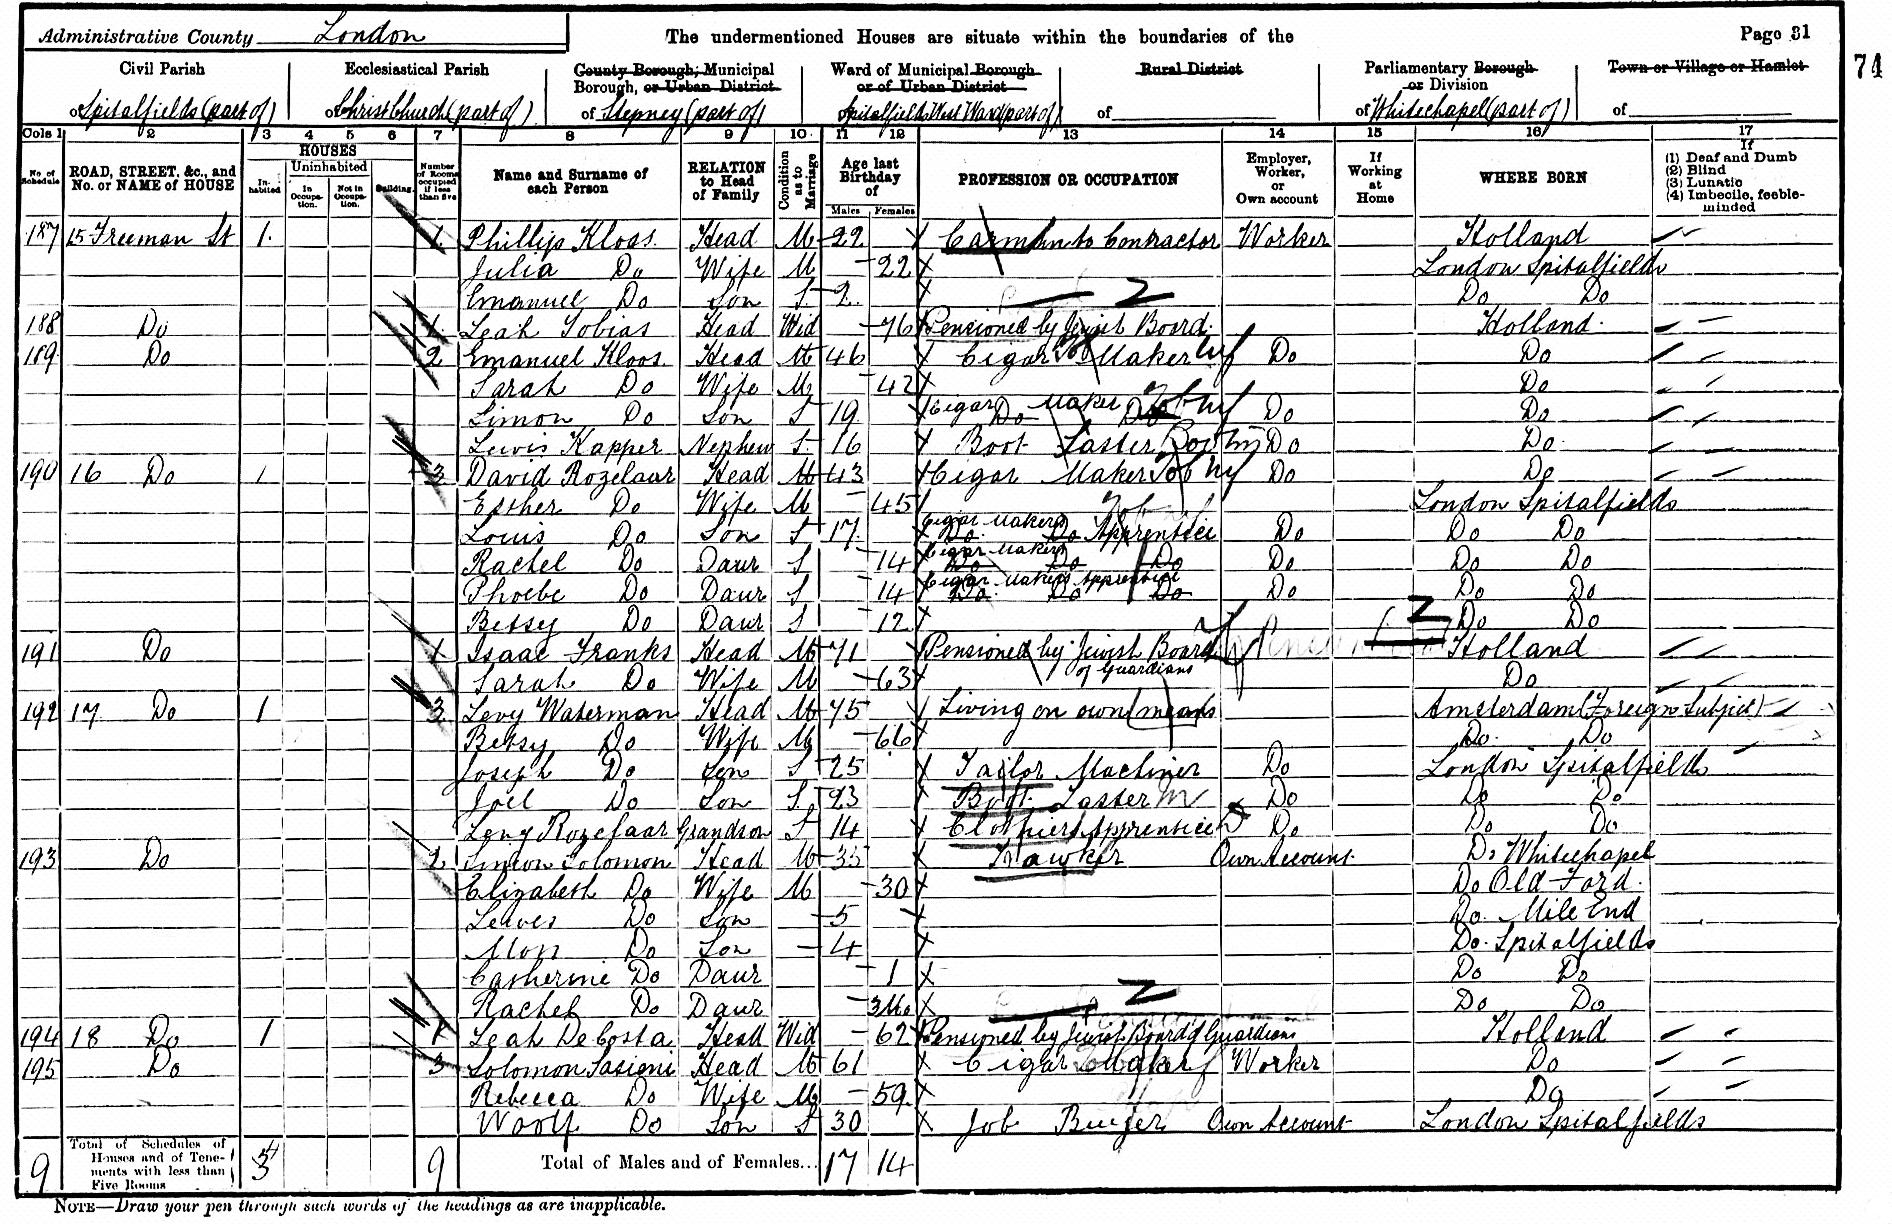 Administrative County London
The undermentioned Houses are situate within the boundaries of the
Page 31
74
Civil Parish
of Spitalfields (part of)
Ecclesiastical Parish
of Christ Church (part of)
County Borough, Municipal
Borough, or Urban District
of Stepney (part of)
Ward of Municipal Borough
or of Urban District
Spitalfields West Ward (part of)
Rural District
of
Parliamentary Borough
or Division
of Whitechapel (part of)
Town or Village or Hamlet
of
Cols 1 2 3 4 5 6 7 8 9 10 11 12 13 14 15 16 17
No. of Schedule
ROAD, STREET, &c., and No. or NAME of HOUSE
HOUSES
Inhabited
Uninhabited
In Occupation.
Not in Occupation.
Building.
Number of Rooms occupied if less than five
Name and Surname of each Person
RELATION to Head of Family
Condition as to Marriage
Age last Birthday of
Males Females
PROFESSION OR OCCUPATION
Employer, Worker, or Own account
If Working at Home
WHERE BORN
If
(1) Deaf and Dumb
(2) Blind
(3) Lunatic
(4) Imbecile, feeble-minded
187 15 Freeman St 1. 1. Phillip Kloos. Head M 22 X Carman to Contractor Worker Holland
Julia Do Wife M 22 X London Spitalfields
Emanuel Do Son S 2. X Do Do
188 Do 1. Leah Tobias Head Wid 76 Pensioned by Jewish Board. Holland
189 Do 2 Emanuel Kloos. Head M 46 X Cigar Maker Do Do
Sarah Do Wife M 42 X Do
Simon Do Son S 19 X Cigar Maker Do Do Do Do
Lewis Kapper Nephew S. 16 X Boot Laster Do Do
190 16 Do 1 3 David Rozelaar Head M 43 X Cigar Maker Do Do
Esther Do Wife M 45 London Spitalfields
Louis Do Son S 17 Cigar Makers Do Do Apprentice Do Do Do
Rachel Do Daur S 14 Cigar Makers Do Do Do Do Do Do
Phoebe Do Daur S 14 Cigar Makers Apprentice Do Do Do Do Do Do
Betsy Do Daur S 12 X Do Do
191 Do 1. Isaac Franks Head M 71 Pensioned by Jewish Board of Guardians Holland
Sarah Do Wife M 63 X Do
192 17 Do 1 3 Levy Waterman Head M 75 Living on own means Amsterdam (Foreign Subject)
Betsy Do Wife M 66 X Do. Do
Joseph Do Son S 25 X Tailor Machiner Do London Spitalfields
Joel Do Son S. 23 X Boot Laster Do Do Do
Levy Rozelaar Grandson S 14 X Clothiers Apprentice Do Do Do
193 Do 2 Simon Solomon Head M 35 X Hawker Own Account Do Whitechapel
Elizabeth Do Wife M 30 X Do Old Ford.
Lewes Do Son 5 X Do. Mile End
Do Son 4 X Do. Spitalfields
Catherine Do Daur 1 X Do Do
Rachel Do Daur 3Mo X Do Do
194 18 Do 1 1 Leah De Costa Head Wid 62 Pensioned by Jewish Board of Guardians Holland
195 Do 3 Solomon Sasieni Head M 61 X Cigar Maker Worker Do
Rebecca Do Wife M 59. X Do
Woolf Do Son S 30 X Job Buyer Own Account London Spitalfields
9 Total of Schedules of Houses and of Tenements with less than Five Rooms 9 Total of Males and of Females... 17 14
NOTE—Draw your pen through such words of the headings as are inapplicable.